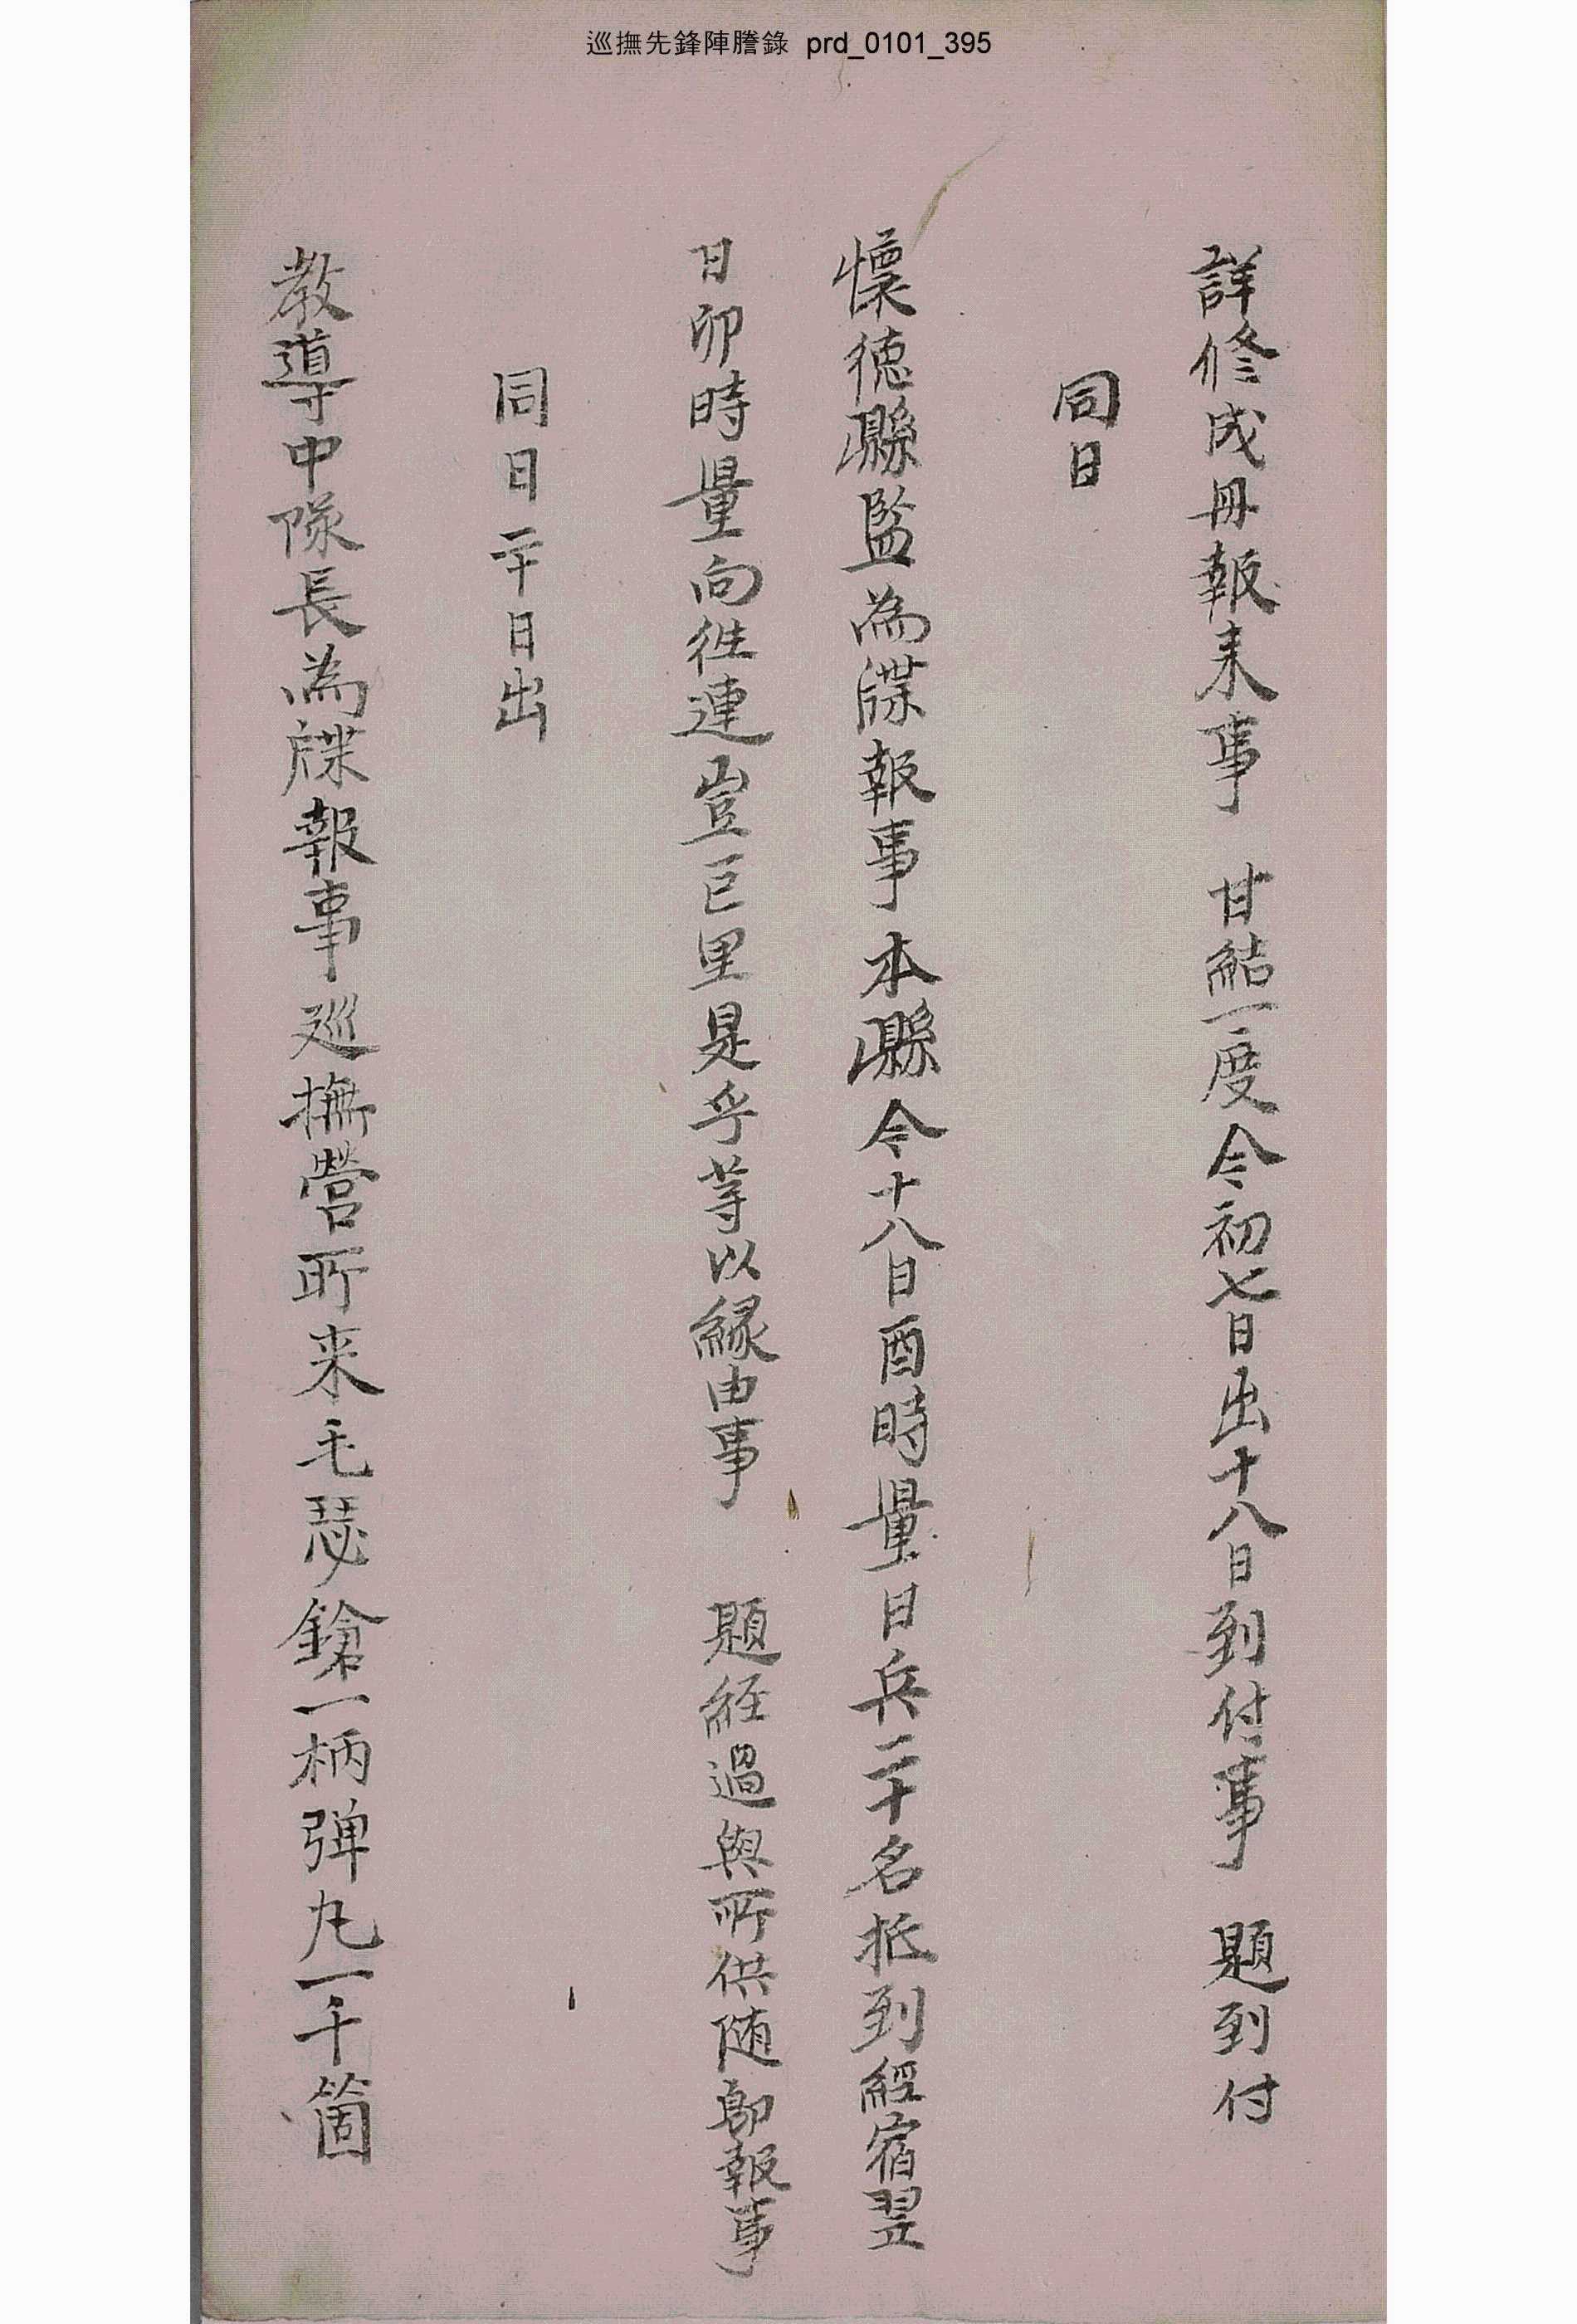 巡撫先鋒陣謄錄 prd_0101_395
詳修成冊報来事 甘結一度令初七日出十八日到付事 題到付
同日
懷德縣監為牒報事本縣令十八日酉時量日兵二十名抵到經宿翌
日卯時量向徃連豈巨里是乎等以緣由事 題経過與所供随即報事
同日二十日出
教導中隊長為牒報事巡撫營所来毛瑟鎗一柄弹丸一千箇